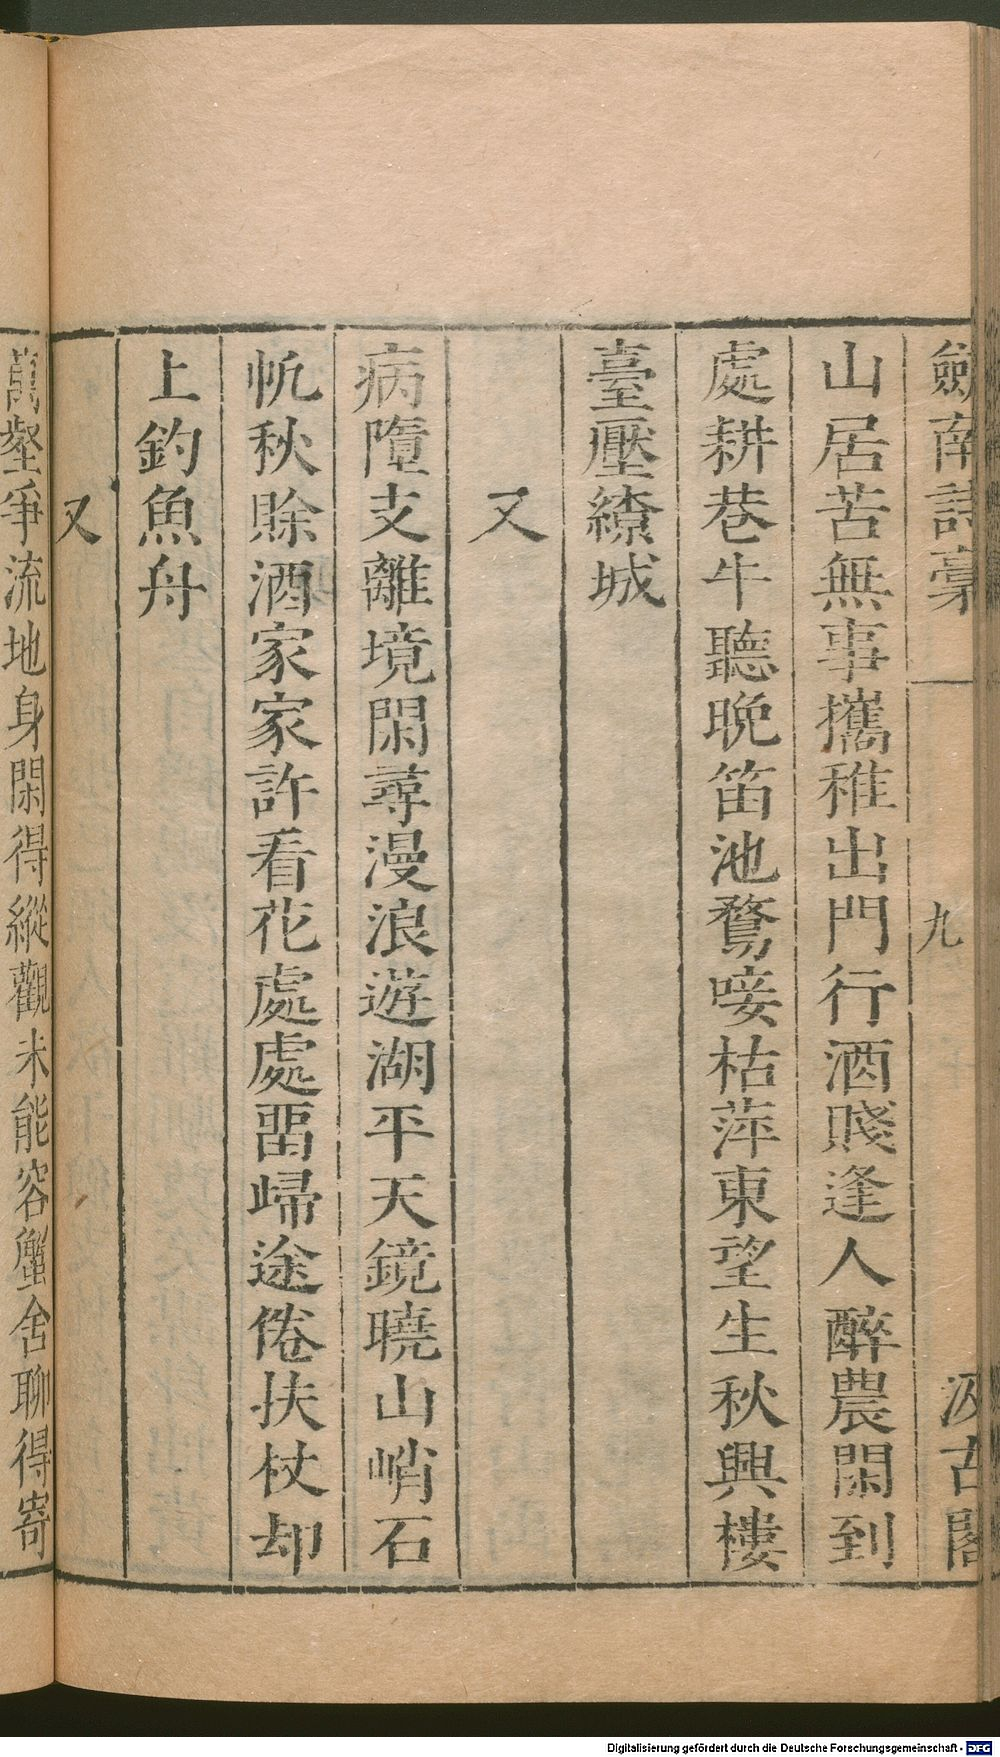 劒南詩稾
九
汲古閣
山居苦無事攜稚出門行酒賤逢人醉農閑到
處耕巷牛聽晚笛池鶩唼枯萍東望生秋興樓
臺壓繚城
又
病隮支離境閑尋漫浪遊湖平天鏡曉山峭石
帆秋賒酒家家許看花處處畱歸途倦扶杖却
上釣魚舟
又
萬壑爭流地身閑得縱觀未能容蟹舍聊得寄
Digitalisierung gefördert durch die Deutsche Forschungsgemeinschaft - DFG